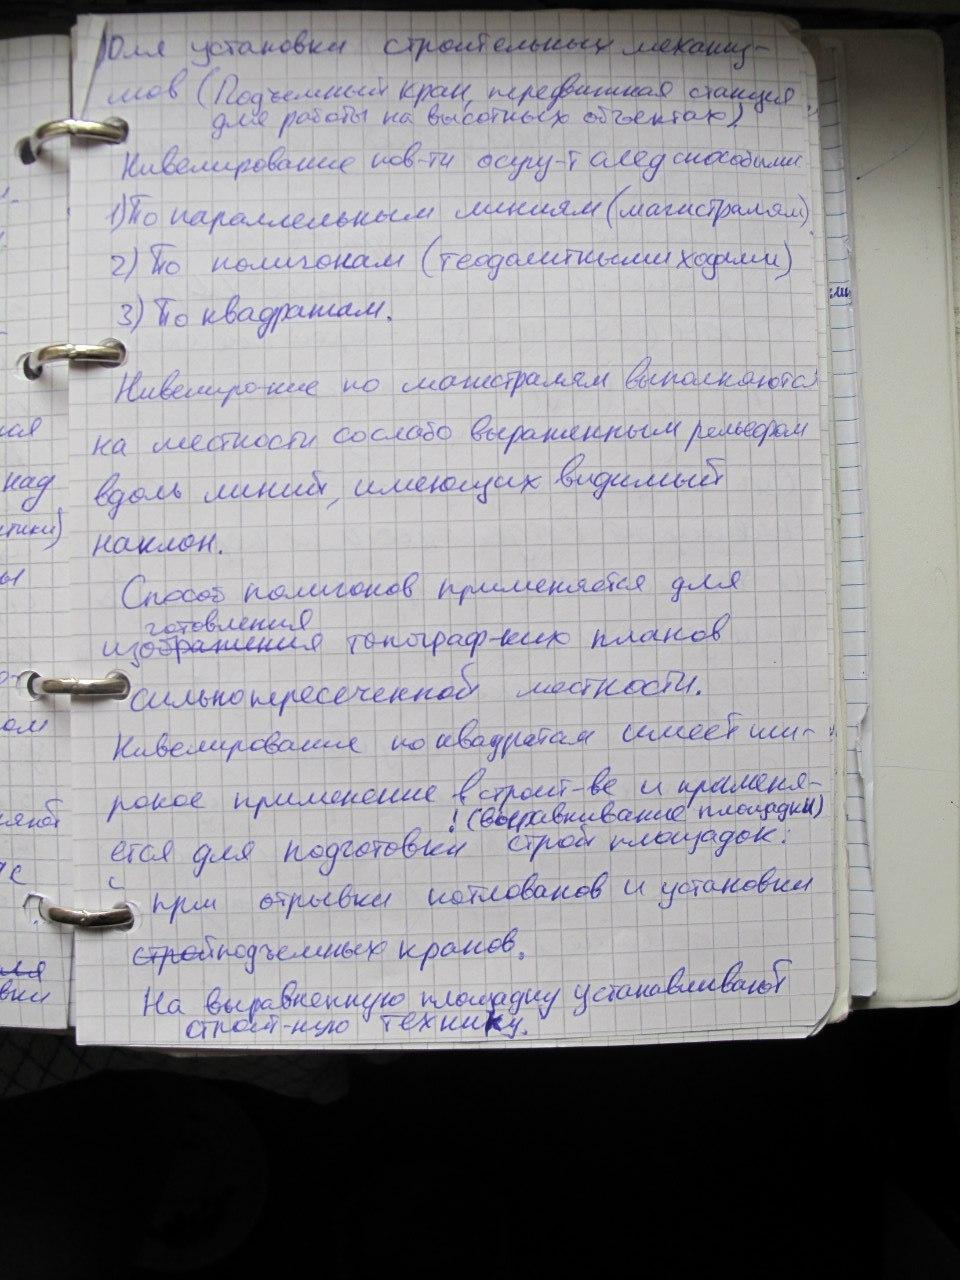 Для установки строительных механиз-
мов (Подъемный кран, передвижная станция
для работы на высотных объектах)
Нивелирование пов-ти осущ-т след способами
1) По параллельным линиям (магистралям)
2) По полигонам (теодолитными ходами)
3) По квадратам.
Нивелиро-ние по магистралям выполняются
на местности со слабо выраженным рельефом
вдоль линий, имеющих видимый
наклон.
Способ полигонов применяется для
готовления
изображения топограф-ких планов
сильнопересеченной местности.
Нивелирование по квадратам имеет ши-
рокое применение в строит-ве и применя-
! (выравнивание площадки)
ется для подготовки строй площадок:
с
при отрывки котлованов и установки
строй подъемных кранов.
На выравненную площадку устанавливают
строит-ную технику.
ная
над
стики)
ы
ом
с
вки